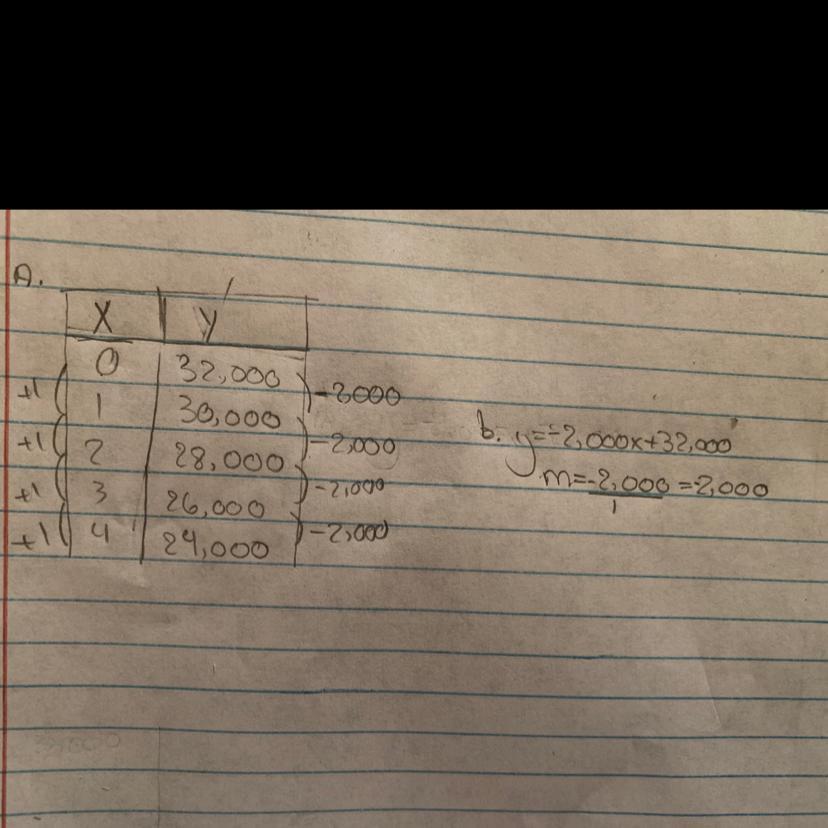 A.
X Y
0 32,000
+1 -2000
1 30,000
+1 -2,000
2 28,000
+1 -2,000
3 26,000
+1 -2,000
4 24,000
b. y=-2,000x+32,000
m=-2,000 =-2,000
1